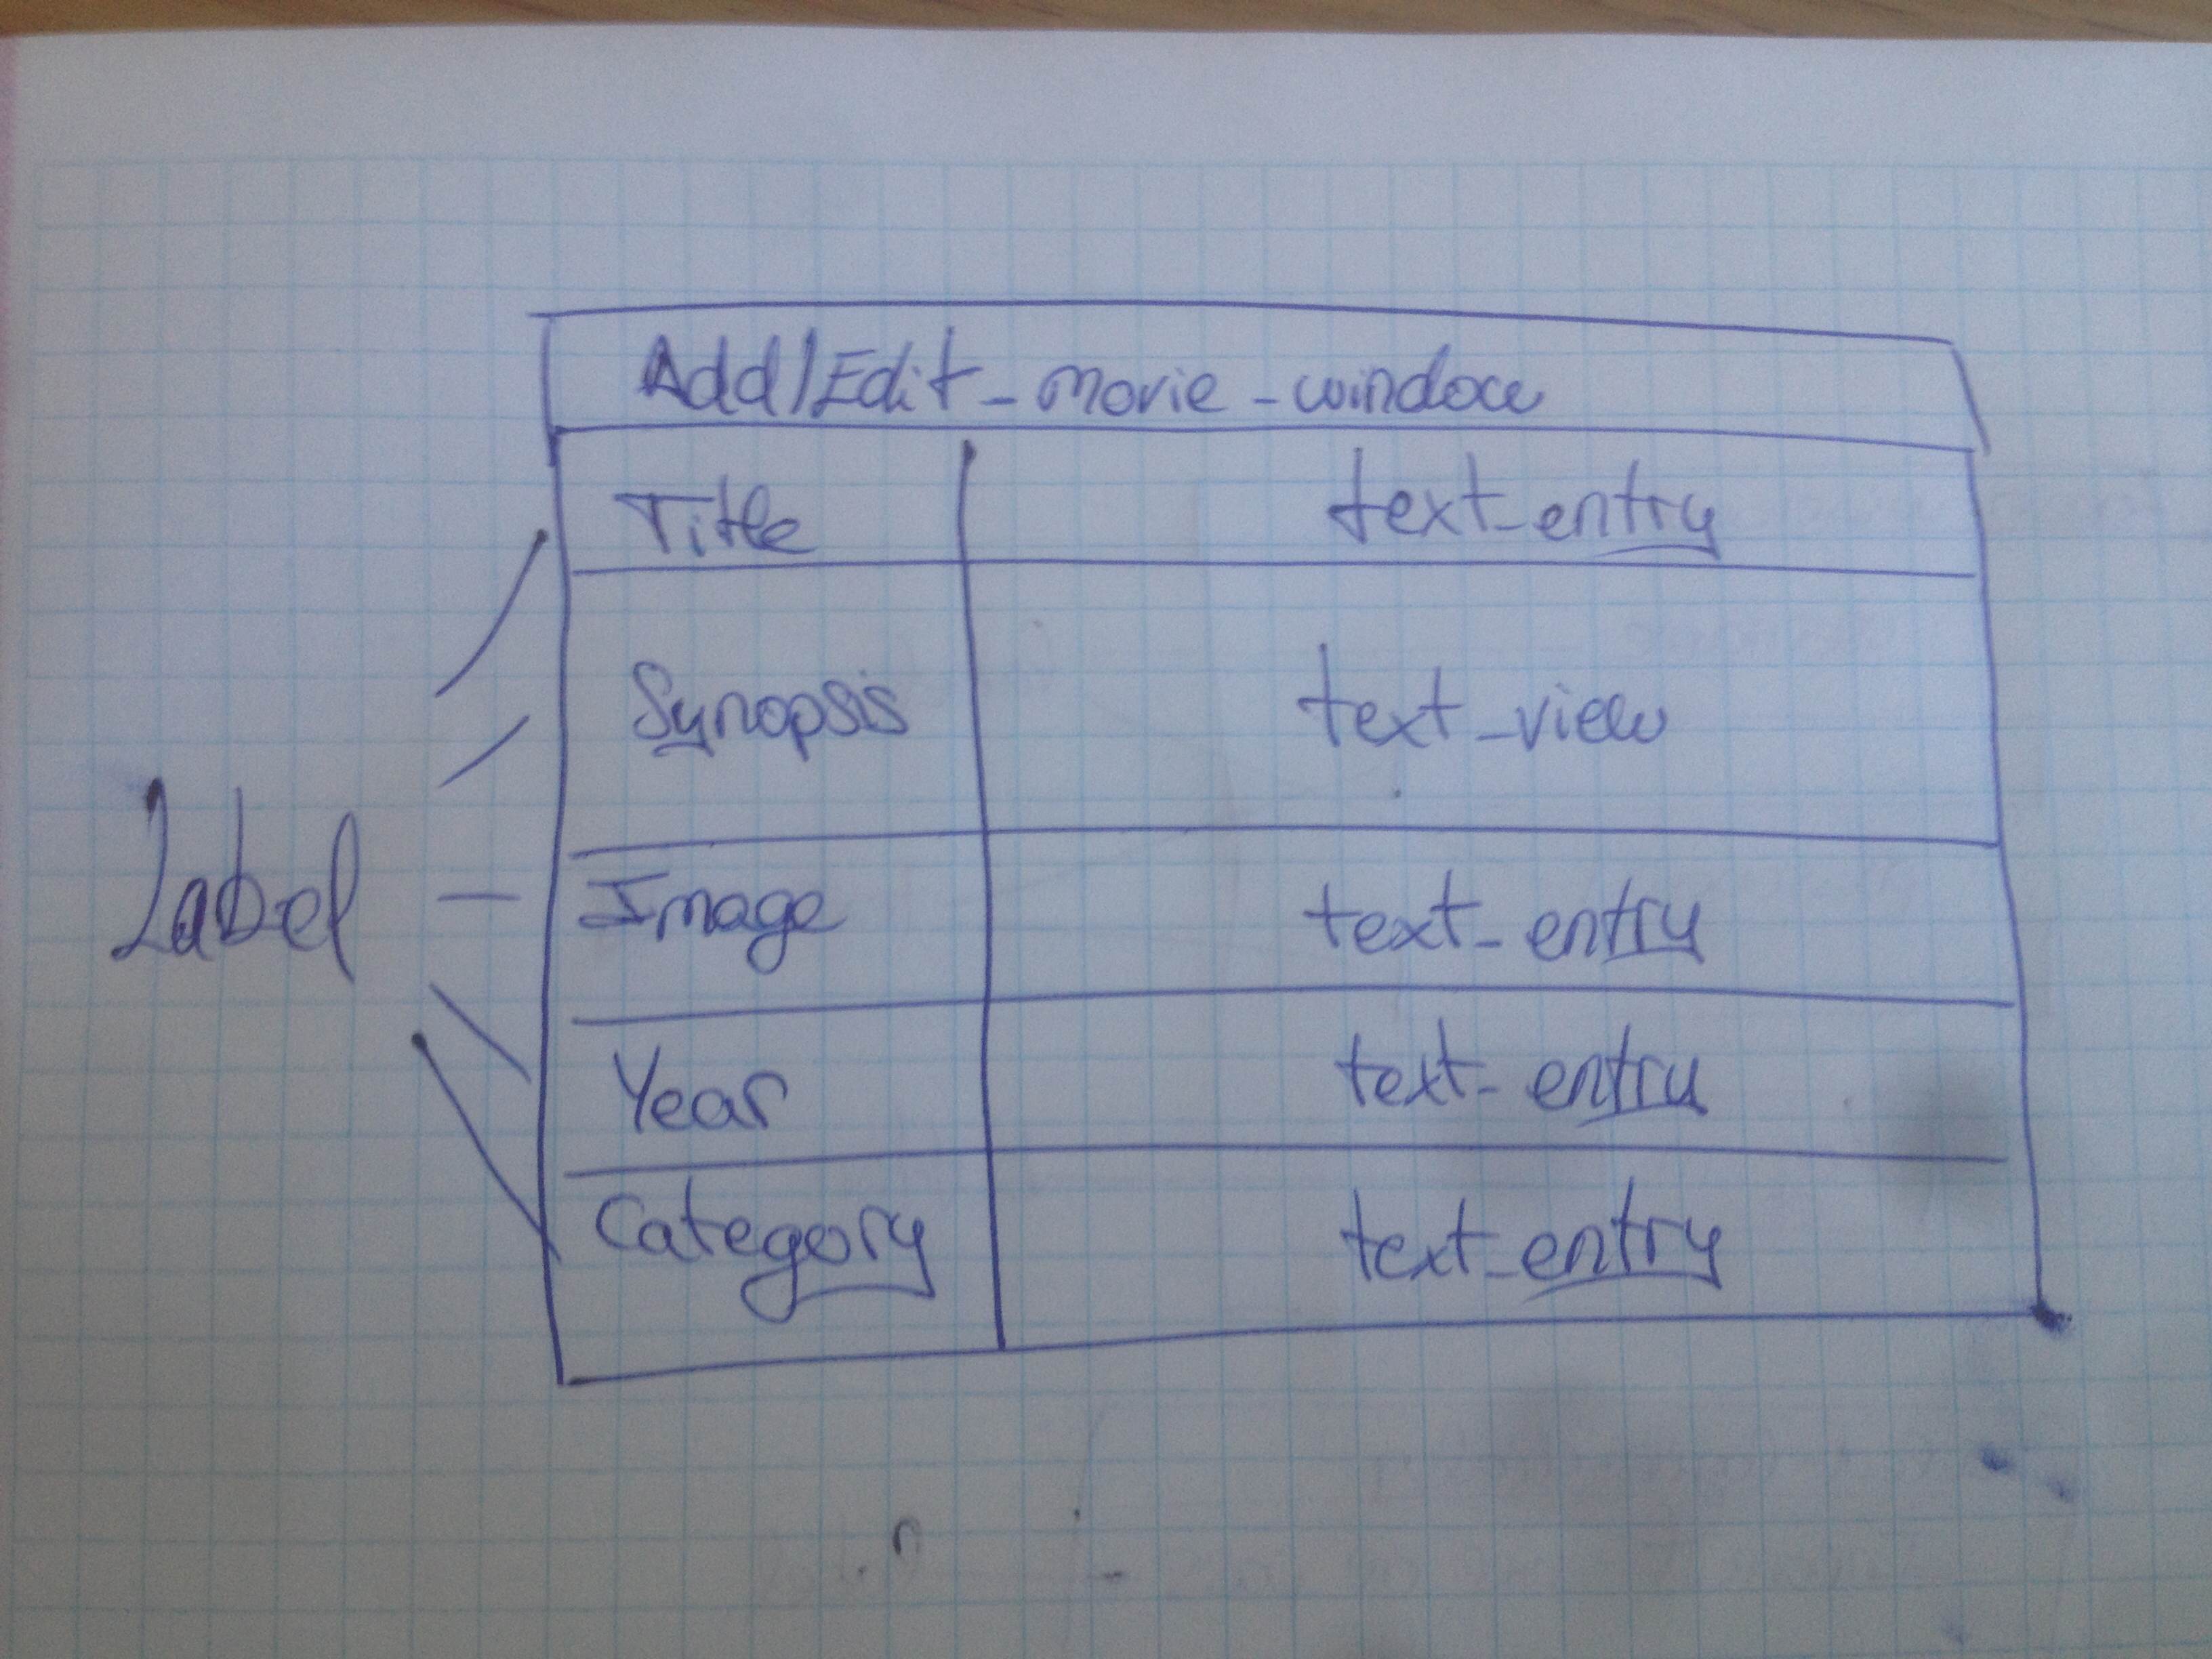 Add/Edit-movie-window
Title text-entry
Synopsis text-view
Label
Image text-entry
Year text-entry
Category text-entry